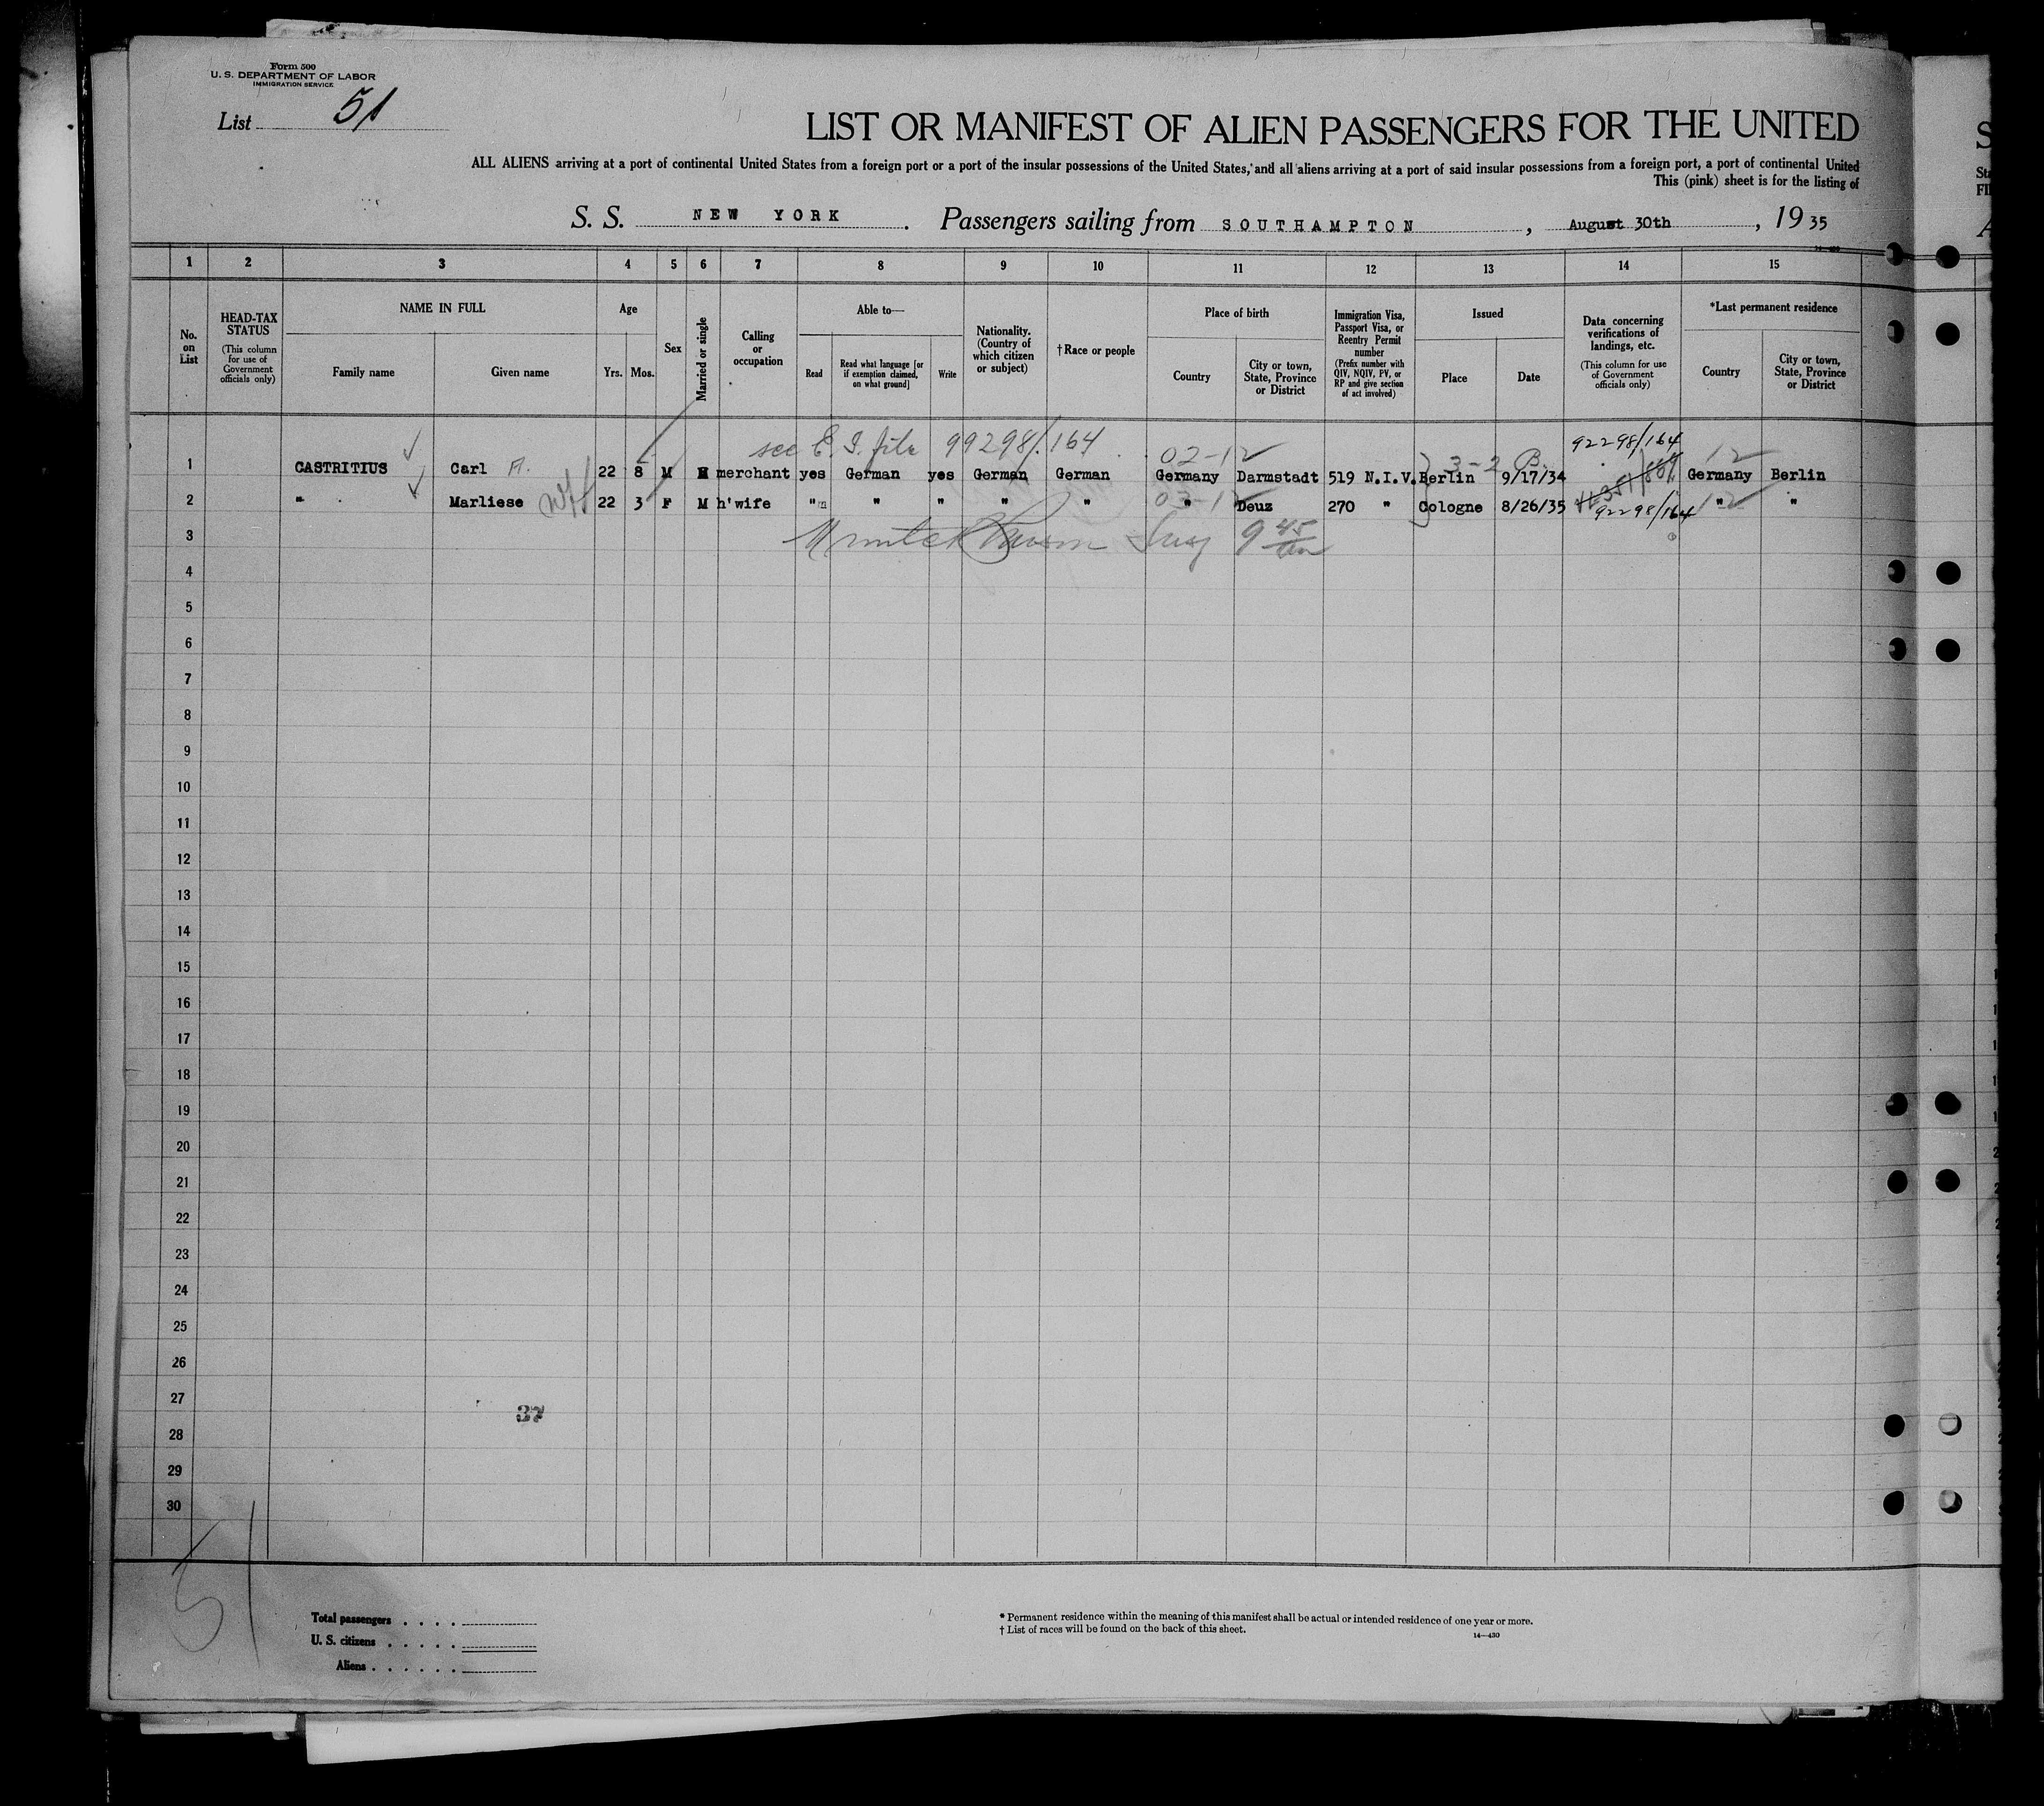 Form 500
U. S. DEPARTMENT OF LABOR
IMMIGRATION SERVICE
List 51
LIST OR MANIFEST OF ALIEN PASSENGERS FOR THE UNITED
ALL ALIENS arriving at a port of continental United States from a foreign port or a port of the insular possessions of the United States, and all aliens arriving at a port of said insular possessions from a foreign port, a port of continental United
This (pink) sheet is for the listing of
S. S. NEW YORK . Passengers sailing from SOUTHAMPTON , August 30th , 19 35
1 2 3 4 5 6 7 8 9 10 11 12 13 14 15
No. on List
HEAD-TAX STATUS (This column for use of Government officials only)
NAME IN FULL
Family name Given name
Age
Yrs. Mos.
Sex
Married or single
Calling or occupation
Able to—
Read
Read what language [or if exemption claimed, on what ground]
Write
Nationality. (Country of which citizen or subject)
†Race or people
Place of birth
Country
City or town, State, Province or District
Immigration Visa, Passport Visa, or Reentry Permit number (Prefix number with QIV, NQIV, PV, or RP and give section of act involved)
Issued
Place Date
Data concerning verifications of landings, etc. (This column for use of Government officials only)
*Last permanent residence
Country
City or town, State, Province or District
see E. I. file 99298/164 02-12 3-2 B. 92298/164 12
1 CASTRITIUS Carl A. 22 8 M M merchant yes German yes German German Germany Darmstadt 519 N.I.V. Berlin 9/17/34 Germany Berlin
2 " Marliese 22 3 F M h'wife " " " " " " Deuz 270 " Cologne 8/26/35 92298/164 " "
3 9 45
4
5
6
7
8
9
10
11
12
13
14
15
16
17
18
19
20
21
22
23
24
25
26
27
37
28
29
30
51
Total passengers
U. S. citizens
Aliens
* Permanent residence within the meaning of this manifest shall be actual or intended residence of one year or more.
† List of races will be found on the back of this sheet.
14—430